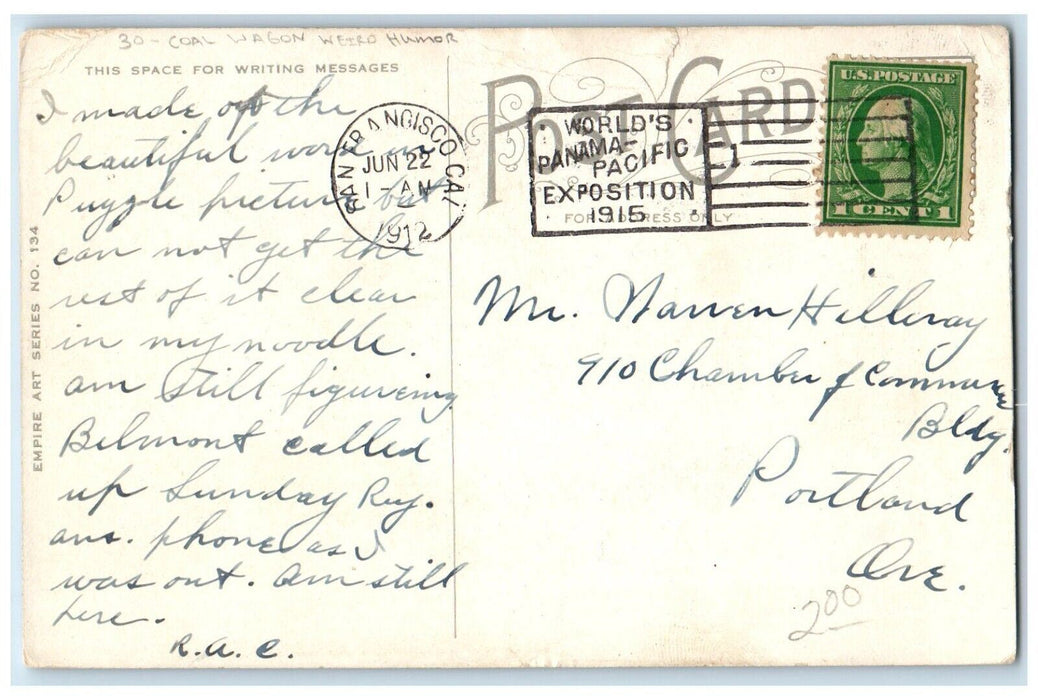 30 - COAL WAGON WEIRD HUMOR
THIS SPACE FOR WRITING MESSAGES
I made of the
beautiful word
Puzzle picture but
can not get the
rest of it clear
in my noodle.
am still figureing
Belmont called
up Sunday Ray.
ans. phone as I
was out. Am still
here.
R.A.C.
EMPIRE ART SERIES NO. 134
POST CARD
SAN FRANCISCO CAL
JUN 22
1-AM
1912
WORLD'S
PANAMA-
PACIFIC
EXPOSITION
1915
1
FOR ADDRESS ONLY
U.S. POSTAGE
1 CENT 1
Mr. Warren Hilleray
910 Chamber of Commerce
Bldg.
Portland
Ore.
200